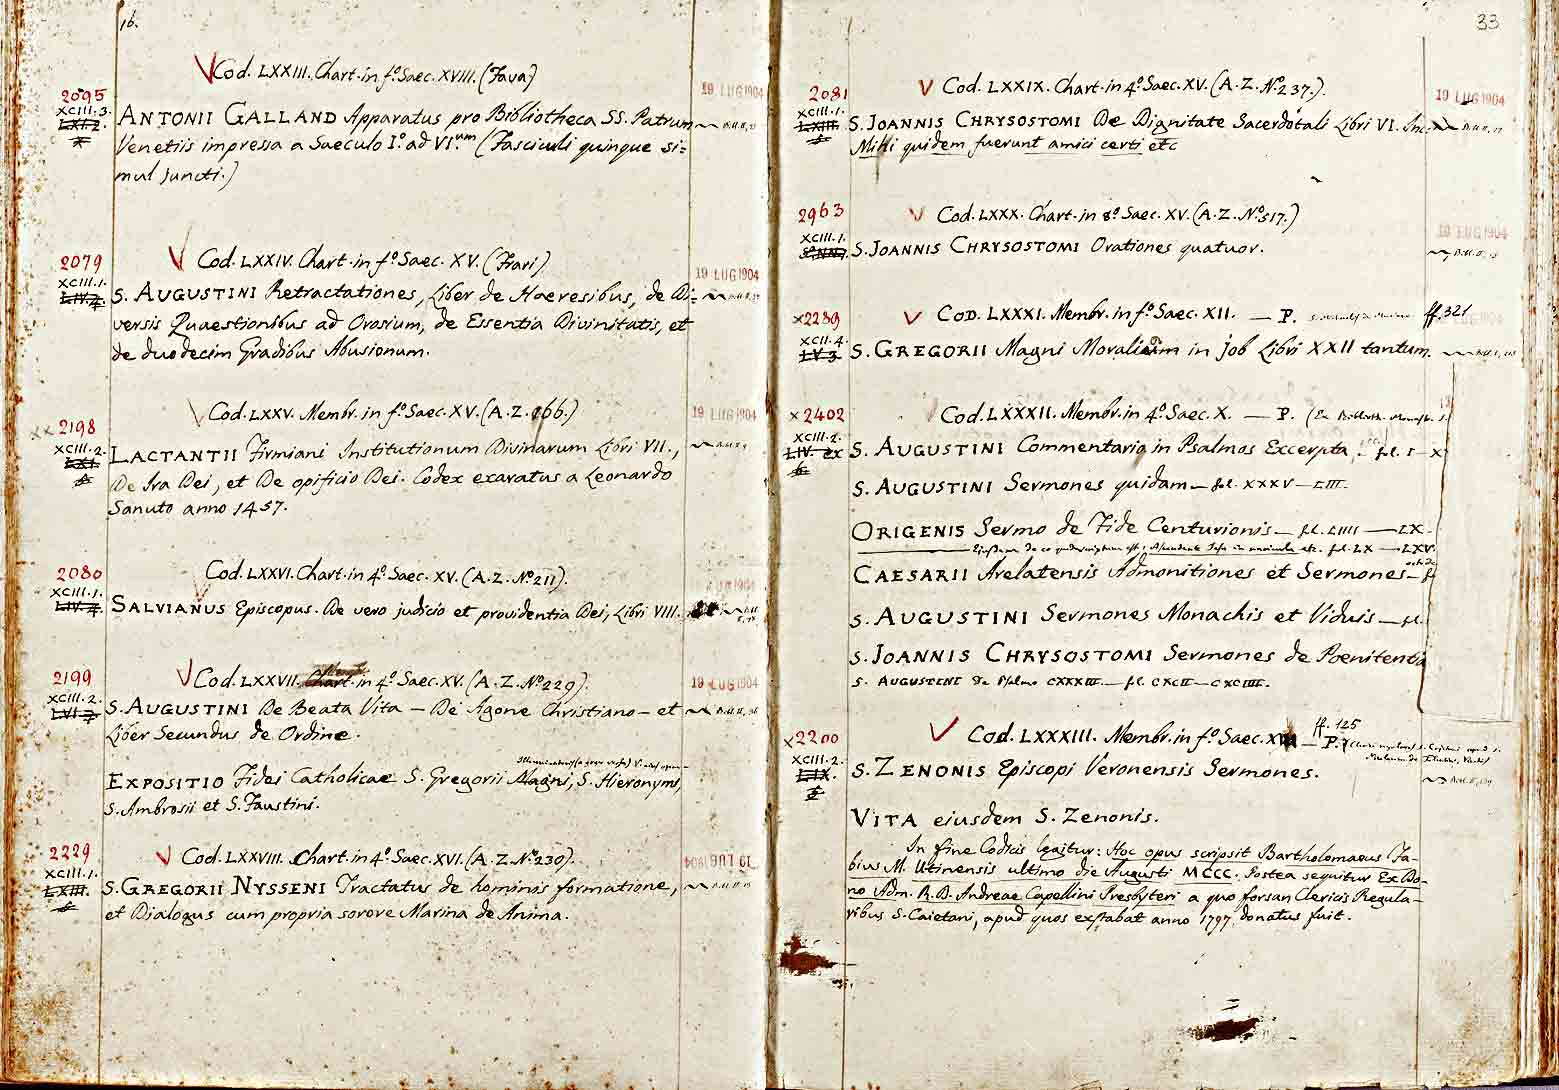 16.
V Cod. LXXIII. Chart. in fº. Saec. XVIII. (Fava)
2095
XCIII. 3.
LXI. 2.
19 LUG 1904
ANTONII GALLAND Apparatus pro Bibliotheca SS. Patrum
Venetiis impressa a Saeculo Iº. ad VI.um (Fasciculi quinque si=
mul juncti.)
V Cod. LXXIV. Chart. in fº. Saec. XV. (Frari)
2079
XCIII. 1.
LIV. 7.
19 LUG 1904
S. AUGUSTINI Retractationes, Liber de Haeresibus, de Di=
versis Quaestionibus ad Orosium, de Essentia Divinitatis, et
de duodecim Gradibus Abusionum.
V Cod. LXXV. Membr. in fº. Saec. XV. (A. Z. 166.)
xx 2198
XCIII. 2.
LXI.
19 LUG 1904
LACTANTII Firmiani Institutionum Divinarum Libri VII.,
De Ira Dei, et De opificio Dei. Codex exaratus a Leonardo
Sanuto anno 1457.
Cod. LXXVI. Chart. in 4º. Saec. XV. (A. Z. Nº. 211).
2080
XCIII. 1.
LIV. 7.
19 LUG 1904
V
SALVIANUS Episcopus. De vero judicio et providentia Dei, Libri VIII.
V Cod. LXXVII. Chart. in 4º. Saec. XV. (A. Z. Nº. 229).
2199
XCIII. 2.
LVI. 7.
19 LUG 1904
S. AUGUSTINI De Beata Vita — De Agone Christiano — et
Liber Secundus de Ordine.
EXPOSITIO Fidei Catholicae S. Gregorii Magni, S. Hieronymi,
S. Ambrosii et S. Faustini.
V Cod. LXXVIII. Chart. in 4º. Saec. XVI. (A. Z. Nº. 230).
2229
XCIII. 1.
LXIII.
5
19 LUG 1904
S. GREGORII NYSSENI Tractatus de hominis formatione,
et Dialogus cum propria sorore Marina de Anima.
33
V Cod. LXXIX. Chart. in 4º. Saec. XV. (A. Z. Nº. 237.).
2081
XCIII. 1.
LXIII.
5
19 LUG 1904
S. JOANNIS CHRYSOSTOMI De Dignitate Sacerdotali Libri VI. Inc.
Mihi quidem fuerunt amici certi etc
V Cod. LXXX. Chart. in 8º. Saec. XV. (A. Z. Nº. 517.)
2963
XCIII. 1.
19 LUG 1904
S. JOANNIS CHRYSOSTOMI Orationes quatuor.
V COD. LXXXI. Membr. in fº. Saec. XII. — P. ff. 321
x2289
XCII. 4.
LV. 3.
S. GREGORII Magni Moralium in Job Libri XXII tantum.
Cod. LXXXII. Membr. in 4º. Saec. X. — P.
x2402
XCIII. 2.
LIV. ex
S. AUGUSTINI Commentaria in Psalmos Excerpta. fol. I — X
S. AUGUSTINI Sermones quidam — fol. XXXV — LIII.
ORIGENIS Sermo de Fide Centurionis — fol. LIIII — LX.
fol. LX — LXV.
CAESARII Arelatensis Admonitiones et Sermones —
S. AUGUSTINI Sermones Monachis et Viduis — fol.
S. JOANNIS CHRYSOSTOMI Sermones de Poenitentia
S. AUGUSTINI de Psalmo CXXXIII — fol. CXCII — CXCIIII.
ff. 125
V Cod. LXXXIII. Membr. in fº. Saec. — P.
x2200
XCIII. 2.
LIX.
S. ZENONIS Episcopi Veronensis Sermones.
VITA ejusdem S. Zenonis.
In fine Codicis legitur: Hoc opus scripsit Bartholomaeus Fa-
bius M. Utinensis ultimo die Augusti MCCC. Postea sequitur Ex Do-
no Adm. R. D. Andreae Capellini Presbyteri a quo forsan Clericis Regula-
ribus S. Caietani, apud quos exstabat anno 1797, donatus fuit.